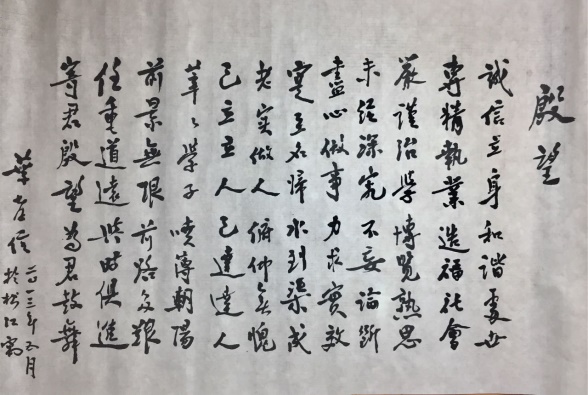 殷望
誠信立身 和諧處世
專精執業 造福社會
嚴謹治學 博覽熟思
未經深究 不妄論斷
盡心做事 力求實效
寔至名歸 水到渠成
老實做人 俯仰無愧
己立立人 己達達人
莘々學子 噴薄朝陽
前景無限 前路多艱
任重道遠 與時俱進
寄君殷望 為君鼓舞
葉孝信
二〇一三年五月
於松江寓